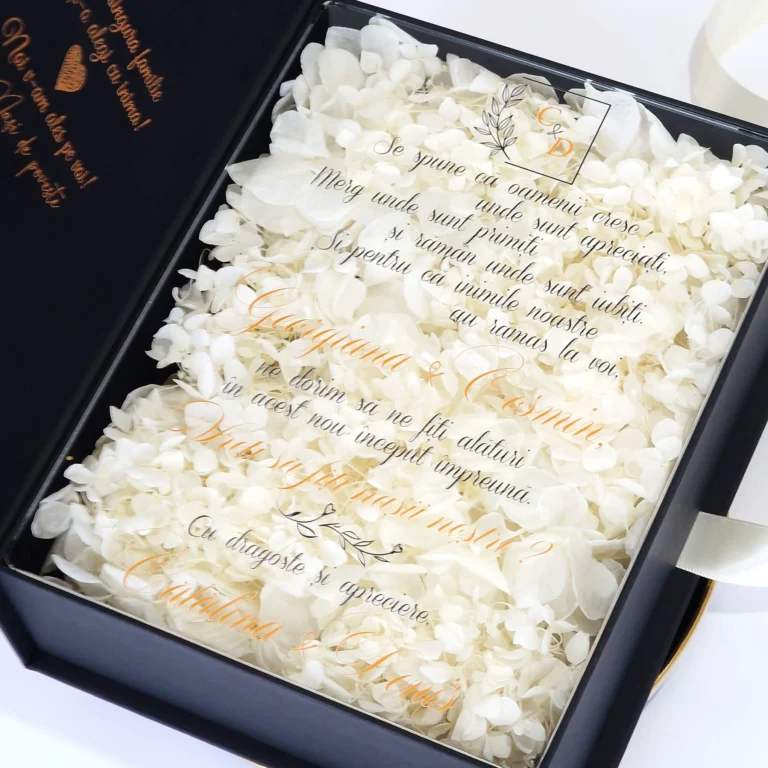 singura familie
o alegi cu inima!
Noi v-am ales pe voi!
Nași de poveste
C
&
D
Se spune că oamenii cresc
unde sunt apreciați.
Merg unde sunt primiți
și rămân unde sunt iubiți.
Și pentru că inimile noastre
au rămas la voi,
Georgiana & Cosmin,
ne dorim să ne fiți alături
în acest nou început împreună.
Vreți să fiți nașii noștri?
Cu dragoste și apreciere,
Cătălina & Denis